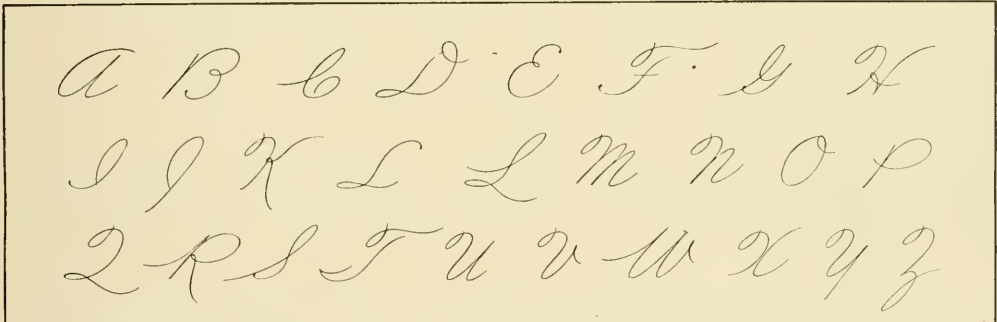 A B C D E F G H
I J K L L M N O P
Q R S T U V W X Y Z